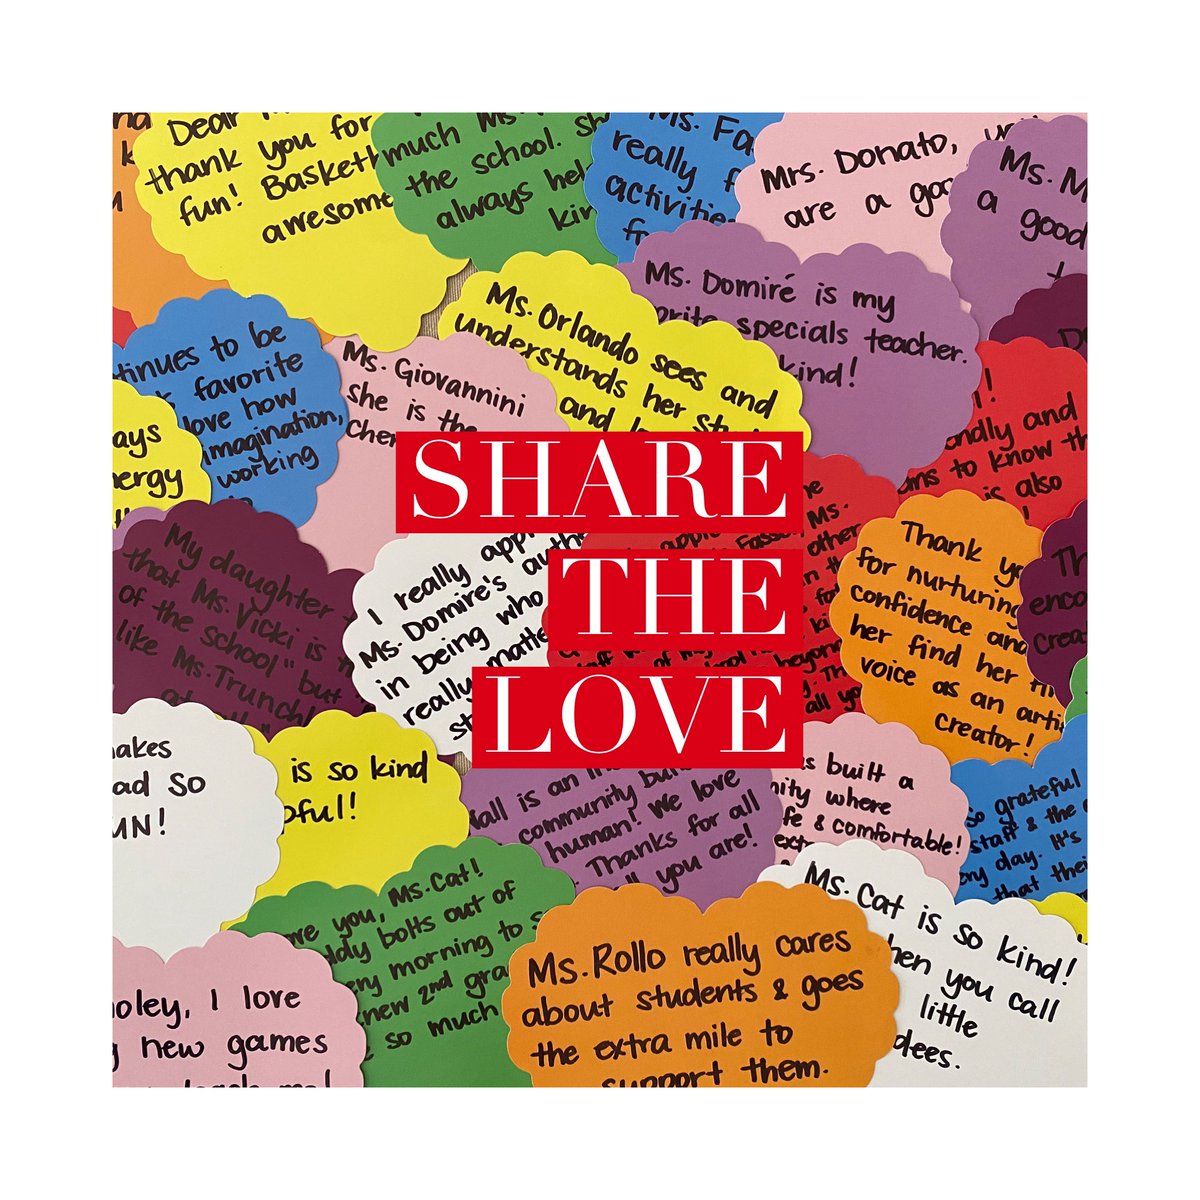 Dear
thank you for
fun! Basketb
awesome
much Ms.
the school. Sh
always hel
kin
Ms. Fa
really f
activities
fr
Mrs. Donato, you
are a good
Ms. M
a good
Ms. Domiré is my
orite specials teacher.
kind!
Ms. Orlando sees and
understands her stud
and lo
tinues to be
favorite
love how
imagination,
working
Ms. Giovannini
she is the
Cher
ays
nergy
ndly and
ms to know th
is also
!
SHARE
THE
LOVE
My daughter
that Ms. Vicki is t
of the school" but
like Ms. Trunchb
I really appr
Ms. Domire's authe
in being who
really matte
st
the
appre
Fasson, Ms.
other
in th
for
beyon
. Th
all yo
Thank yo
for nurturing
confidence and
her find her
voice as an artis
creator!
Th
encou
creat
makes
ad so
MN!
is so kind
pful!
fall is an in
community buil
human! We love
Thanks for all
you are!
s built a
nity where
fe & comfortable!
extr
so grateful
staff & the
ry day. It's
that thei
you, Ms. Cat!
ddy bolts out of
ery morning to s
new 2nd gra
so much
Ms. Cat is so kind!
hen you call
little
dees.
Ms. Rollo really cares
about students & goes
the extra mile to
support them.
ooley, I love
g new games
teach me!